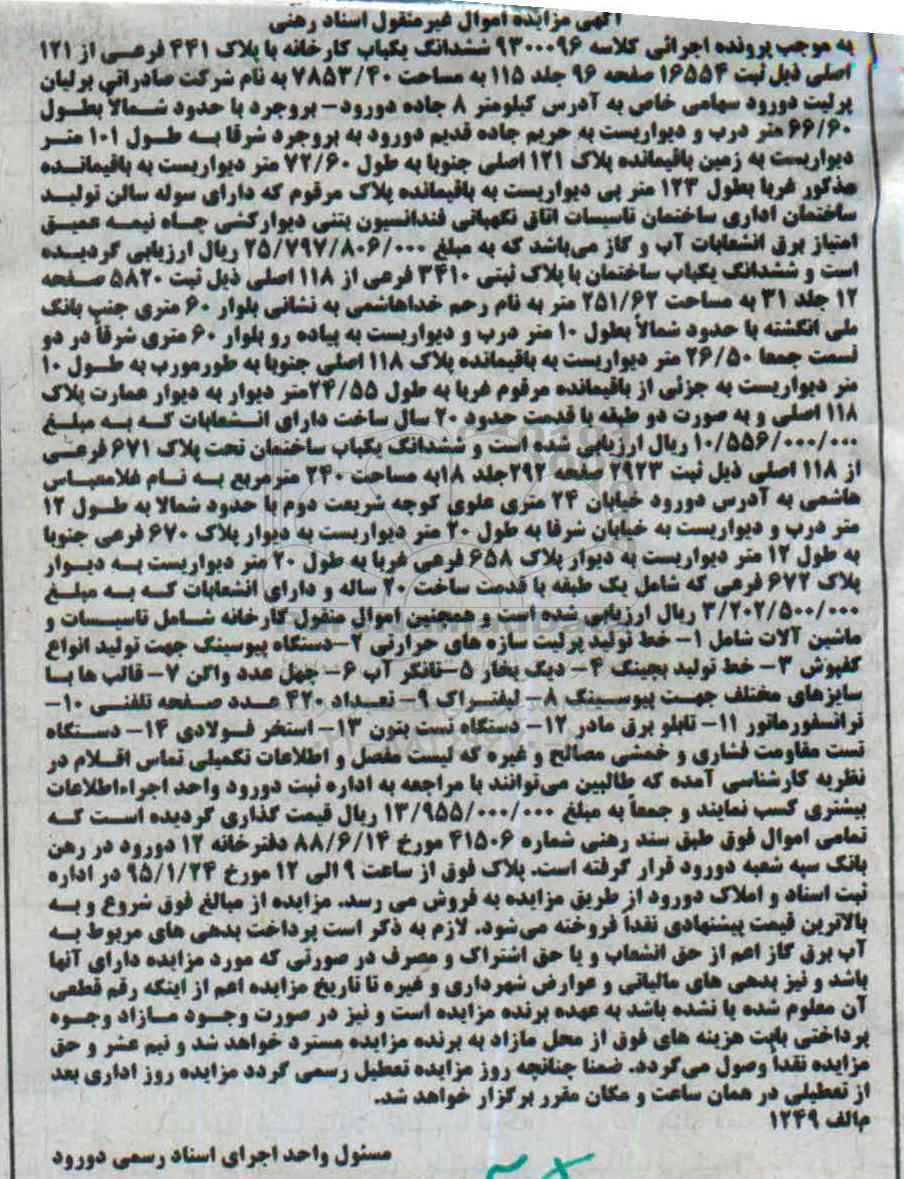 آگهی مزایده اموال غیرمنقول اسناد رهنی
به موجب پرونده اجرائی کلاسه ۹۳۰۰۰۹۶ ششدانگ یکباب کارخانه با پلاک ۴۴۱ فرعی از ۱۲۱
اصلی ذیل ثبت ۱۶۵۵۴ صفحه ۹۶ جلد ۱۱۵ به مساحت ۷۸۵۳/۴۰ به نام شرکت صادراتی برلیان
پرلیت دورود سهامی خاص به آدرس کیلومتر ۸ جاده دورود- بروجرد با حدود شمالاً بطول
۶۶/۶۰ متر درب و دیواریست به حریم جاده قدیم دورود به بروجرد شرقا به طول ۱۰۱ متر
دیواریست به زمین باقیمانده پلاک ۱۲۱ اصلی جنوبا به طول ۷۲/۶۰ متر دیواریست به باقیمانده
مذکور غربا بطول ۱۲۳ متر پی دیواریست به باقیمانده پلاک مرقوم که دارای سوله سالن تولید
ساختمان اداری ساختمان تاسیسات اتاق نگهبانی فنداسیون بتنی دیوارکشی چاه نیمه عمیق
امتیاز برق انشعابات آب و گاز می‌باشد که به مبلغ ۲۵/۷۹۷/۸۰۶/۰۰۰ ریال ارزیابی گردیده
است و ششدانگ یکباب ساختمان با پلاک ثبتی ۳۴۱۰ فرعی از ۱۱۸ اصلی ذیل ثبت ۵۸۲۰ صفحه
۱۲ جلد ۳۱ به مساحت ۲۵۱/۶۲ متر به نام رحم خداهاشمی به نشانی بلوار ۶۰ متری جنب بانک
ملی انگشته با حدود شمالاً بطول ۱۰ متر درب و دیواریست به پیاده رو بلوار ۶۰ متری شرقاً در دو
قسمت جمعا ۲۶/۵۰ متر دیواریست به باقیمانده پلاک ۱۱۸ اصلی جنوبا به طورمورب به طول ۱۰
متر دیواریست به جزئی از باقیمانده مرقوم غربا به طول ۲۴/۵۵متر دیوار به دیوار عمارت پلاک
۱۱۸ اصلی و به صورت دو طبقه با قدمت حدود ۲۰ سال ساخت دارای انشعابات که به مبلغ
۱۰/۵۵۶/۰۰۰/۰۰۰ ریال ارزیابی شده است و ششدانگ یکباب ساختمان تحت پلاک ۶۷۱ فرعی
از ۱۱۸ اصلی ذیل ثبت ۲۹۲۳ صفحه ۲۹۲جلد ۱۸به مساحت ۲۴۰ مترمربع به نام غلامعباس
هاشمی به آدرس دورود خیابان ۲۴ متری علوی کوچه شریعت دوم با حدود شمالا به طول ۱۲
متر درب و دیواریست به خیابان شرقا به طول ۲۰ متر دیواریست به دیوار پلاک ۶۷۰ فرعی جنوبا
به طول ۱۲ متر دیواریست به دیوار پلاک ۶۵۸ فرعی غربا به طول ۲۰ متر دیواریست به دیوار
پلاک ۶۷۲ فرعی که شامل یک طبقه با قدمت ساخت ۲۰ ساله و دارای انشعابات که به مبلغ
۳/۲۰۲/۵۰۰/۰۰۰ ریال ارزیابی شده است و همچنین اموال منقول کارخانه شامل تاسیسات و
ماشین آلات شامل ۱- خط تولید پرلیت سازه های حرارتی ۲-دستگاه پیوسینگ جهت تولید انواع
کفپوش ۳- خط تولید بچینگ ۴- دیگ بخار ۵-تانکر آب ۶- چهل عدد واگن ۷- قالب ها با
سایزهای مختلف جهت پیوسینگ ۸- لیفتراک ۹- تعداد ۴۲۰ عدد صفحه تلفنی ۱۰-
ترانسفورماتور ۱۱- تابلو برق مادر ۱۲- دستگاه تست بتون ۱۳- استخر فولادی ۱۴- دستگاه
تست مقاومت فشاری و خمشی مصالح و غیره که لیست مفصل و اطلاعات تکمیلی تماس اقلام در
نظریه کارشناسی آمده که طالبین می‌توانند با مراجعه به اداره ثبت دورود واحد اجراءاطلاعات
بیشتری کسب نمایند و جمعاً به مبلغ ۱۳/۹۵۵/۰۰۰/۰۰۰ ریال قیمت گذاری گردیده است که
تمامی اموال فوق طبق سند رهنی شماره ۴۱۵۰۶ مورخ ۸۸/۶/۱۴ دفترخانه ۱۲ دورود در رهن
بانک سپه شعبه دورود قرار گرفته است. پلاک فوق از ساعت ۹ الی ۱۲ مورخ ۹۵/۱/۲۴ در اداره
ثبت اسناد و املاک دورود از طریق مزایده به فروش می رسد. مزایده از مبالغ فوق شروع و به
بالاترین قیمت پیشنهادی نقداً فروخته می‌شود. لازم به ذکر است پرداخت بدهی های مربوط به
آب برق گاز اعم از حق انشعاب و یا حق اشتراک و مصرف در صورتی که مورد مزایده دارای آنها
باشد و نیز بدهی های مالیاتی و عوارض شهرداری و غیره تا تاریخ مزایده اعم از اینکه رقم قطعی
آن معلوم شده یا نشده باشد به عهده برنده مزایده است و نیز در صورت وجود مازاد وجوه
پرداختی بابت هزینه های فوق از محل مازاد به برنده مزایده مسترد خواهد شد و نیم عشر و حق
مزایده نقداً وصول می‌گردد. ضمنا چنانچه روز مزایده تعطیل رسمی گردد مزایده روز اداری بعد
از تعطیلی در همان ساعت و مکان مقرر برگزار خواهد شد.
م‌الف ۱۲۴۹
مسئول واحد اجرای اسناد رسمی دورود